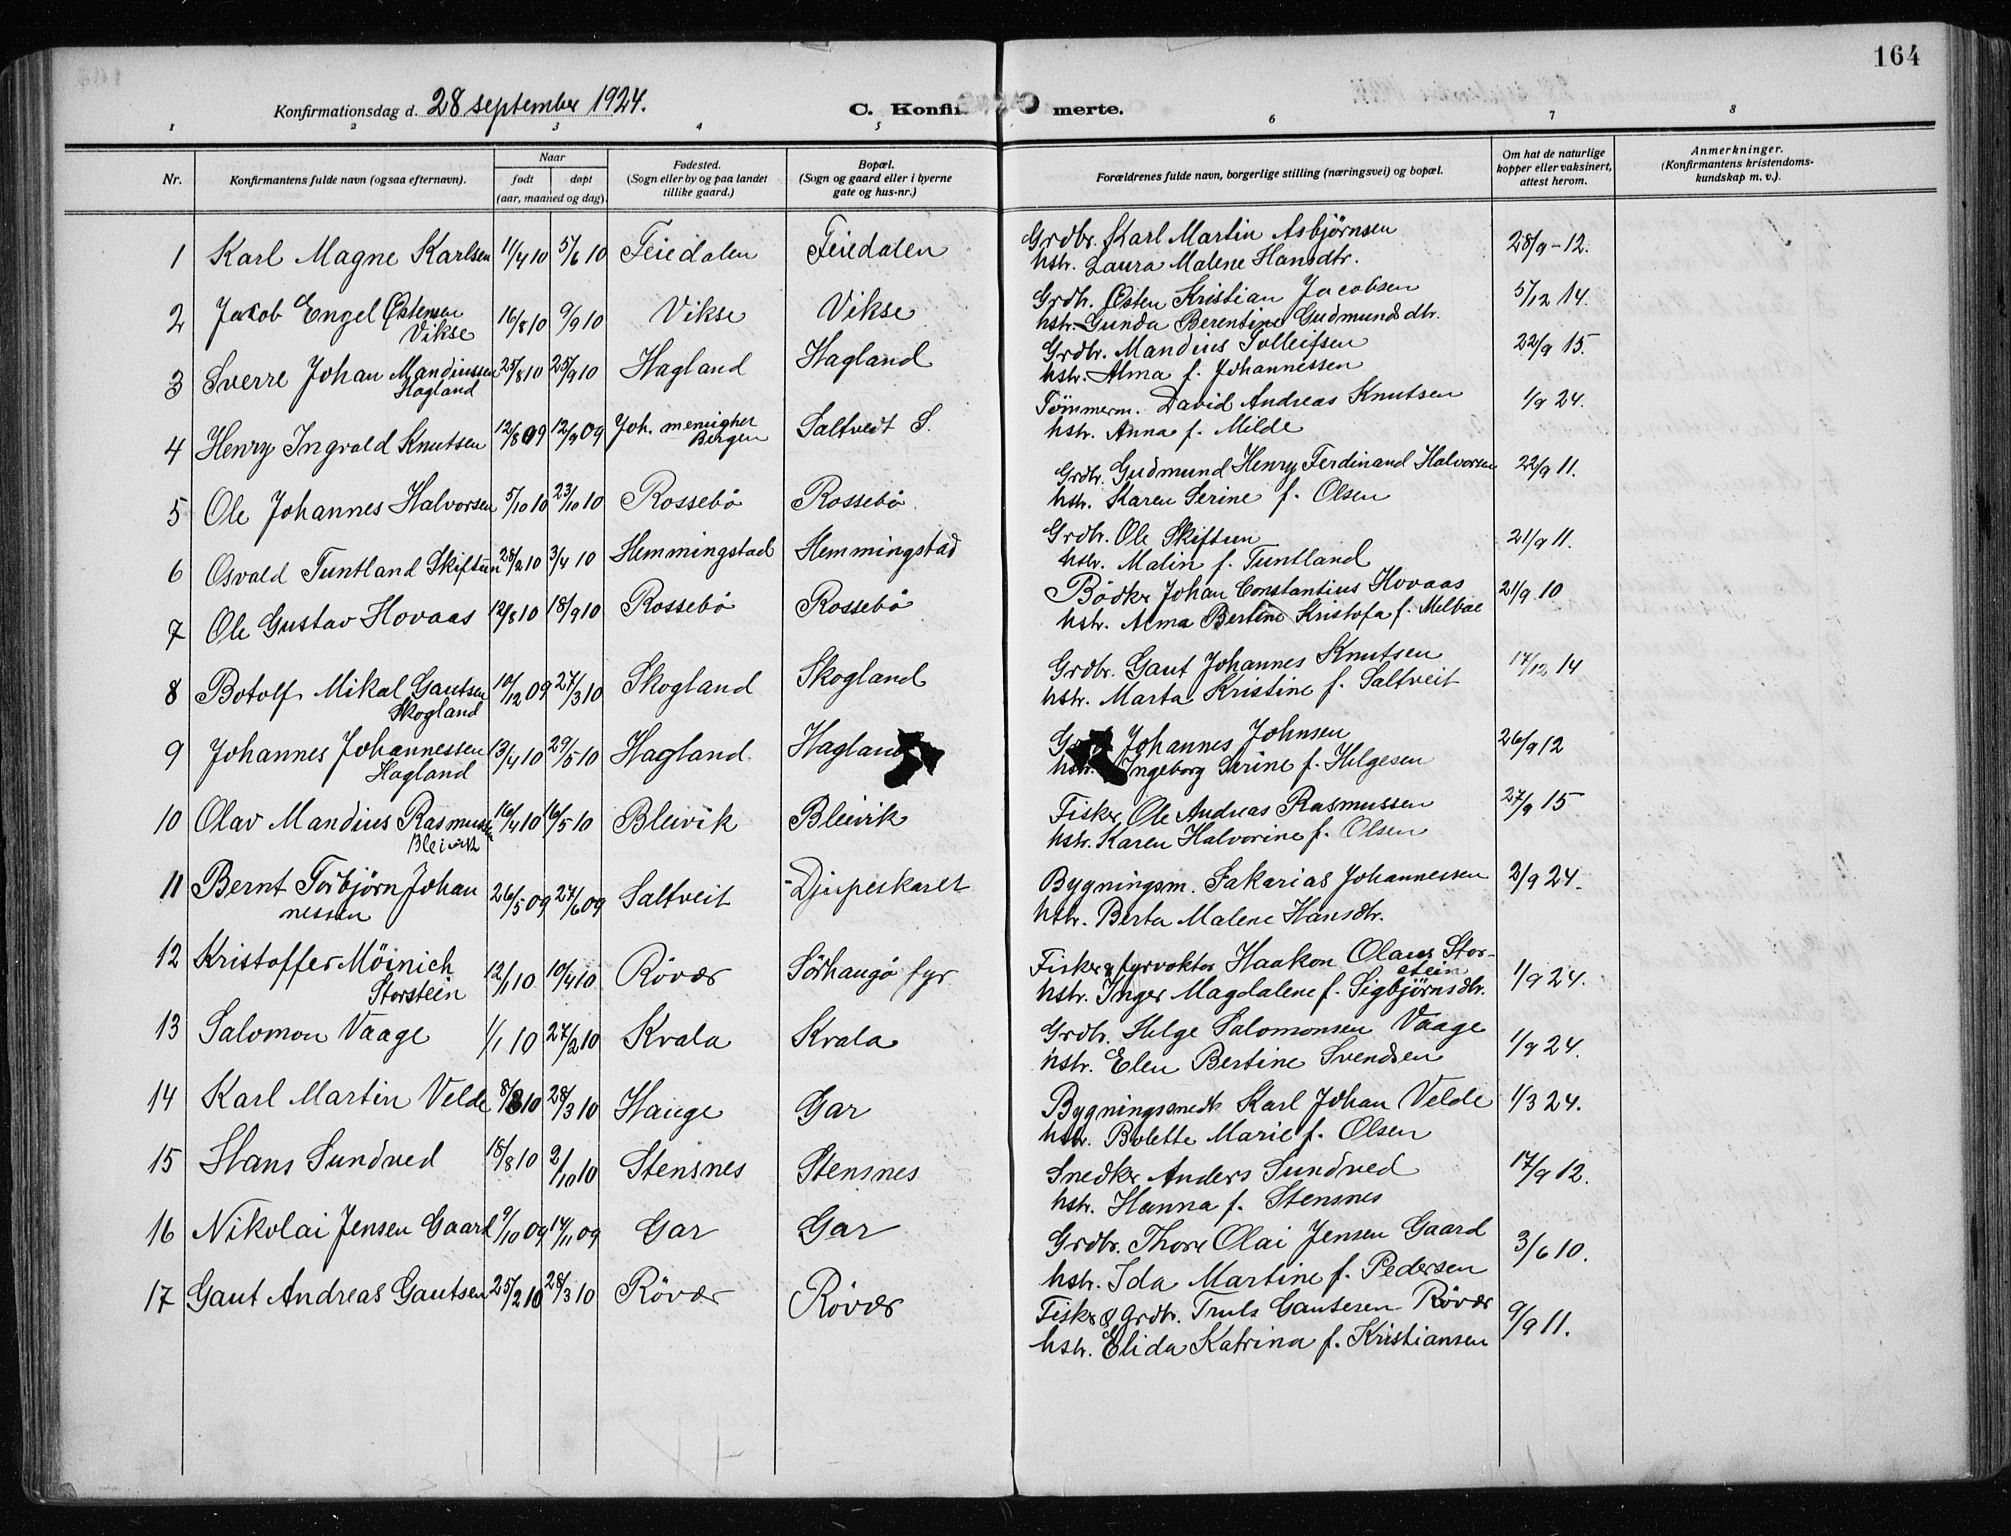 164
Konfirmationsdag d. 28 september 1924.
C. Konfir merte.
1 2 3 4 5 6 7 8
Nr.
Konfirmantens fulde navn (ogsaa efternavn).
Naar
født døpt
(aar, maaned og dag).
Fødested.
(Sogn eller by og paa landet
tillike gaard.)
Bopæl.
(Sogn og gaard eller i byerne
gate og hus-nr.)
Forældrenes fulde navn, borgerlige stilling (næringsvei) og bopæl.
Om hat de naturlige
kopper eller vaksinert,
attest herom.
Anmerkninger.
(Konfirmantens kristendoms-
kundskap m. v.).
1 Karl Magne Karlsen 11/4 10 5/6 10 Feiedalen Feiedalen Grdbr. Karl Martin Asbjørnsen 28/9-12.
hstr. Laura Malene Hansdtr.
2 Jakob Engel Østensen 16/8 10 9/9 10 Vikse Vikse Grdb. Østen Kristian Jacobsen 5/12 14.
Vikse hstr. Gunda Berentine Gudmundsdtr.
3 Sverre Johan Mandiussen 25/8 10 25/9 10 Hagland Hagland Grdbr. Mandius Solleifsen 22/9 15.
Hagland hstr. Alma f. Johannessen
4 Henry Ingvald Knutsen 12/8 09 12/9 09 Joh. menighet Saltvedt S. Tömmerm. David Andreas Knutsen 1/9 24.
Bergen hstr. Anna f. Milde
5 Ole Johannes Halvorsen 5/10 10 23/10 10 Rossebö Rossebö. Grdbr. Gudmund Henry Ferdinand Halvorsen 22/9 11.
hstr. Karen Serine f. Olsen
6 Osvald Tuntland Skiftun 28/2 10 3/4 10 Hemmingstad Hemmingstad Grdbr. Ole Skiftun 21/9 11.
hstr. Malin f. Tuntland
7 Ole Gustav Hovaas 12/8 10 18/9 10 Rossebö Rossebö Bödker Johan Constantius Hovaas 21/9 10
hstr. Alma Bertine Kristofa f. Melbae
8 Botolf Mikal Gautsen 10/12 09 27/3 10 Skogland Skogland Grdbr. Gaut Johannes Knutsen 17/12 14
Skogland hstr. Marta Kristine f. Saltveit
9 Johannes Johannessen 13/4 10 29/5 10 Hagland Haglan Johannes Johnsen 26/9 12
Hagland hstr. Ingeborg Serine f. Helgesen
10 Olav Mandius Rasmussen 16/4 10 16/5 10 Bleivik Bleivik Fisker Ole Andreas Rasmussen 27/9 15
Bleivik hstr. Karen Halvorine f. Olsen
11 Bernt Torbjörn Johan 26/5 09 27/6 09 Saltveit Djupeskaret Bygningsm. Sakarias Johannessen 2/9 24.
nessen hstr. Berta Malene Hansdtr.
12 Kristoffer Möinich 12/1 10 10/4 10 Rövær Sörhaugö fyr Fisker & fyrvoktor Haakon Olaus Stor-
stein 1/9 24.
Storstein hstr. Inger Magdalene f. Sigbjörnsdtr.
13 Salomon Vaage 1/1 10 27/2 10 Kvala Kvala Grdbr. Helge Salomonsen Vaage 1/9 24.
hstr. Elen Bertine Svendsen
14 Karl Martin Velde 8/3 10 28/3 10 Hauge Gar Bygningssnedk. Karl Johan Velde 1/3 24.
hstr. Bolette Marie f. Olsen
15 Hans Sundved 18/8 10 2/10 10 Stensnes Stensnes Snedker Anders Sundved 17/9 12.
hstr. Hanna f. Stensnes
16 Nikolai Jensen Gaard 9/10 09 14/11 09 Gar Gar Grdbr. Thore Olai Jensen Gaard 3/6 10.
hstr. Ida Martine f. Pedersen
17 Gaut Andreas Gautsen 25/2 10 28/3 10 Rövær Rövær Fisker & Grdbr. Truls Gautesen Rövær 9/9 11.
hstr. Elida Katrina f. Kristiansen